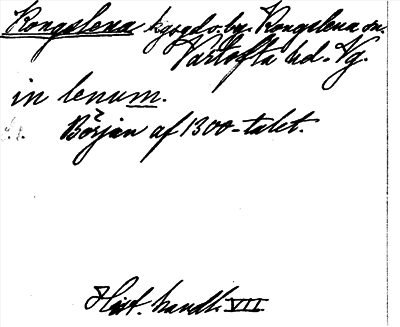 Kongslena kgsgd o. by. Kongslena sn.
Vartofta hd. Vg.
in lenum.
Början af 1300-talet.
Hist. handl. VII